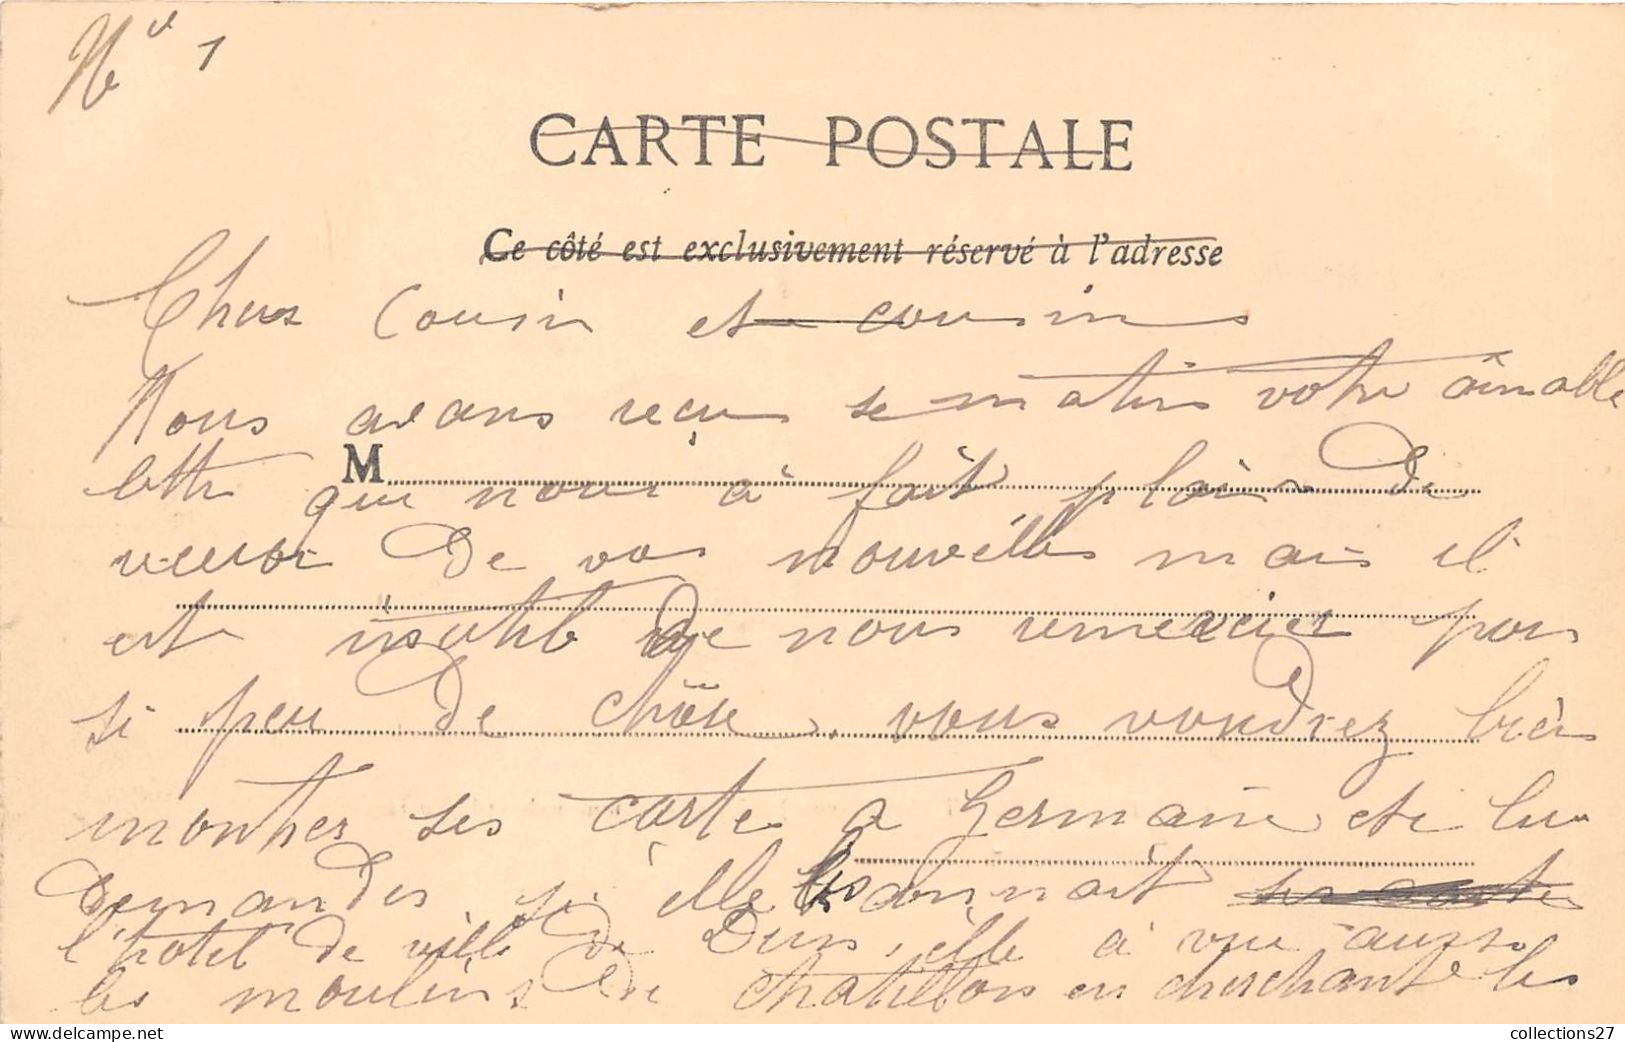 N° 1
CARTE POSTALE
Ce côté est exclusivement réservé à l'adresse
Chers Cousin et cousine
Nous avons reçu se matin votre aimable
M
lettre qui nous à fait plaisir de
recevoir de vos nouvelles mais il
est inutile de nous remercier pour
si peu de chose, vous voudrez bien
montrer ses carte a Germaine et lui
demander si elle les connait
l'hotel de ville de Dun, elle à vue aussi
les moulins de Chatillon en cherchant les
collections27